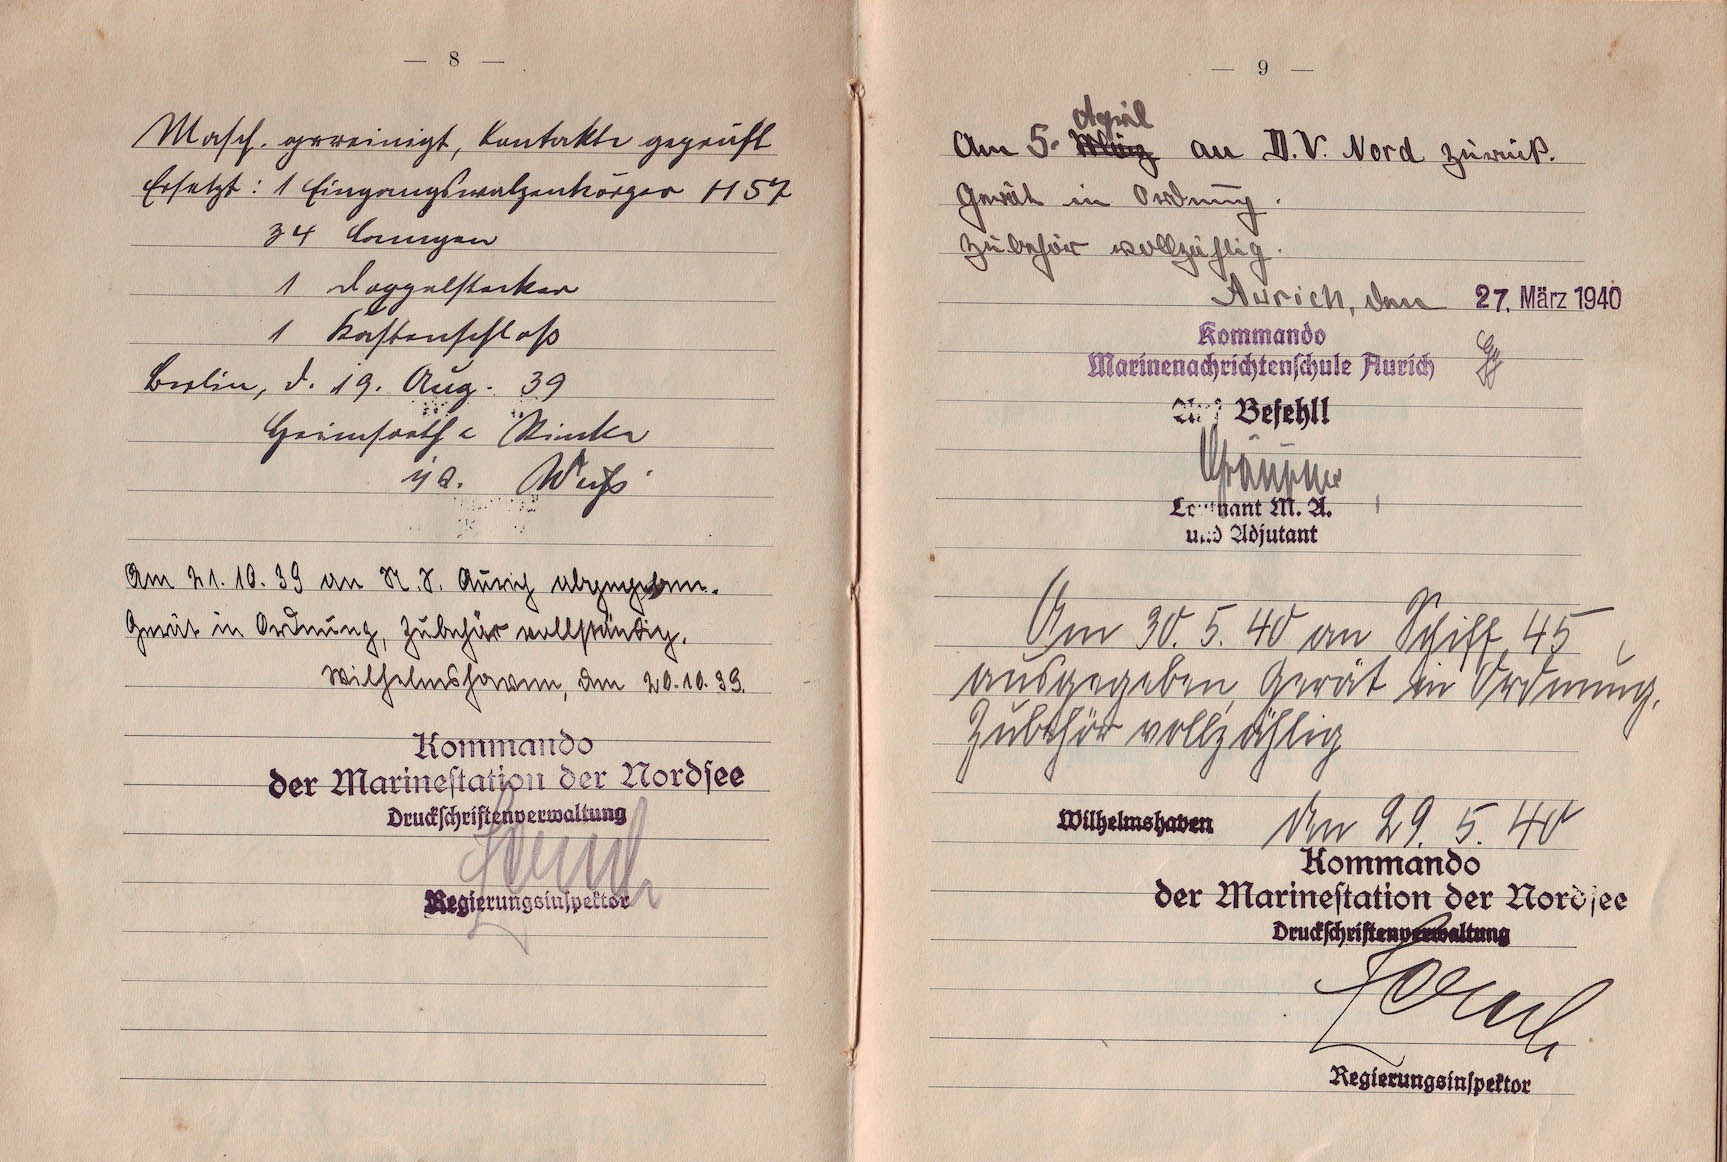 — 8 —
Masch. gereinigt, Kontakte geprüft
Ersetzt: 1 Eingangswalzenkörper H 57
34 Lampen
1 Doppelstecker
1 Kastenschloß
Berlin, d. 19. Aug. 39
Heimsoeth & Rinke
Am 21.10.39 an N. S. Aurich abgegeben.
Gerät in Ordnung, Zubehör vollständig.
Wilhelmshaven, den 20.10.39.
Kommando
der Marinestation der Nordsee
Druckschriftenverwaltung
Regierungsinspektor
— 9 —
April
Am 5. März an D. V. Nord zurück.
Gerät in Ordnung.
Zubehör vollzählig.
Aurich, den 27. März 1940
Kommando
Marinenachrichtenschule Aurich
Auf Befehl!
Leutnant M. A.
und Adjutant
Am 30. 5. 40 an Schiff 45
ausgegeben, Gerät in Ordnung,
Zubehör vollzählig
Wilhelmshaven den 29. 5. 40
Kommando
der Marinestation der Nordsee
Druckschriftenverwaltung
Regierungsinspektor